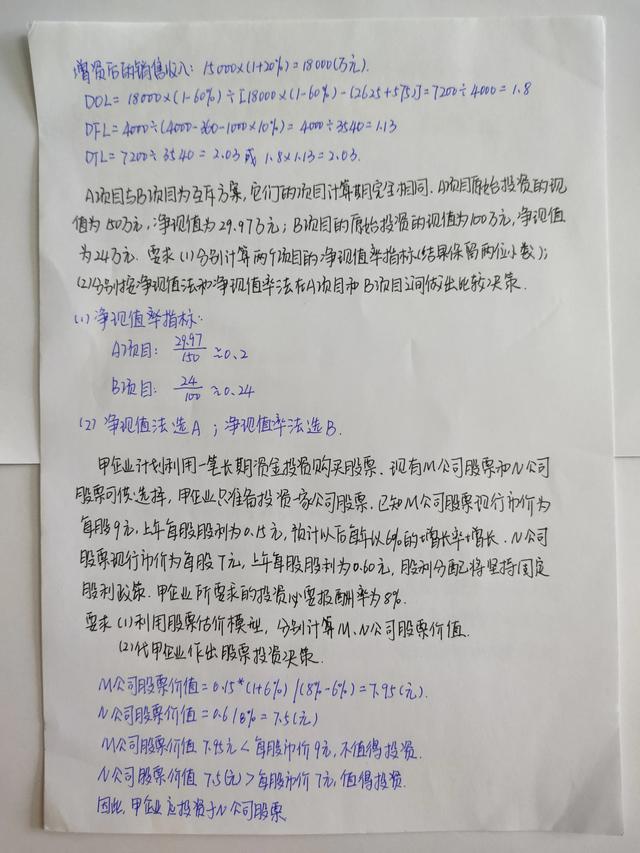 增资后的销售收入: 15000×(1+20%)=18000(万元).
DOL=18000×(1-60%)÷[18000×(1-60%)-(2625+575)]=7200÷4000=1.8
DFL=4000÷(4000-360-1000×10%)=4000÷3540=1.13
DTL=7200÷3540=2.03 或 1.8×1.13=2.03.
A项目与B项目为互斥方案,它们的项目计算期完全相同.A项目原始投资的现
值为150万元,净现值为29.97万元;B项目的原始投资的现值为100万元,净现值
为24万元. 要求(1)分别计算两个项目的净现值率指标(结果保留两位小数);
(2)分别按净现值法和净现值率法在A项目和B项目之间做出比较决策.
(1)净现值率指标:
A项目: 29.97/150≈0.2
B项目: 24/100≈0.24
(2)净现值法选A;净现值率法选B.
甲企业计划利用一笔长期资金投资购买股票. 现有M公司股票和N公司
股票可供选择,甲企业只准备投资一家公司股票.已知M公司股票现行市价为
每股9元,上年每股股利为0.15元,预计以后每年以6%的增长率增长.N公司
股票现行市价为每股7元,上年每股股利为0.60元,股利分配将坚持固定
股利政策.甲企业所要求的投资必要报酬率为8%.
要求(1)利用股票估价模型,分别计算M、N公司股票价值.
(2)代甲企业作出股票投资决策.
M公司股票价值=0.15*(1+6%)/(8%-6%)=7.95(元).
N公司股票价值=0.6/8%=7.5(元)
M公司股票价值7.95元<每股市价9元,不值得投资.
N公司股票价值7.5(元)>每股市价7元,值得投资.
因此,甲企业应投资于N公司股票